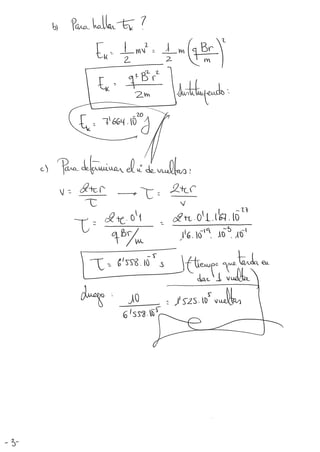 b) Para hallar Eₖ ?
Eₖ = 1/2 mv² = 1/2 m (q Br / m)²
Eₖ = q² B² r² / 2m Sustituyendo :
Eₖ = 7'664.10²⁰ J
c) Para determinar el nº de vueltas :
v = 2πr / T → T = 2πr / v
T = 2π. 0'1 / q Br/m = 2π. 0'1. 1'67. 10⁻²⁷ / 1'6. 10⁻¹⁹. 10⁻³. 10⁻¹
T = 6'558. 10⁻⁵ s (tiempo que tarda en
dar 1 vuelta)
Luego : 10 / 6'558. 10⁻⁵ = 1'525. 10⁵ vueltas
- 3 -